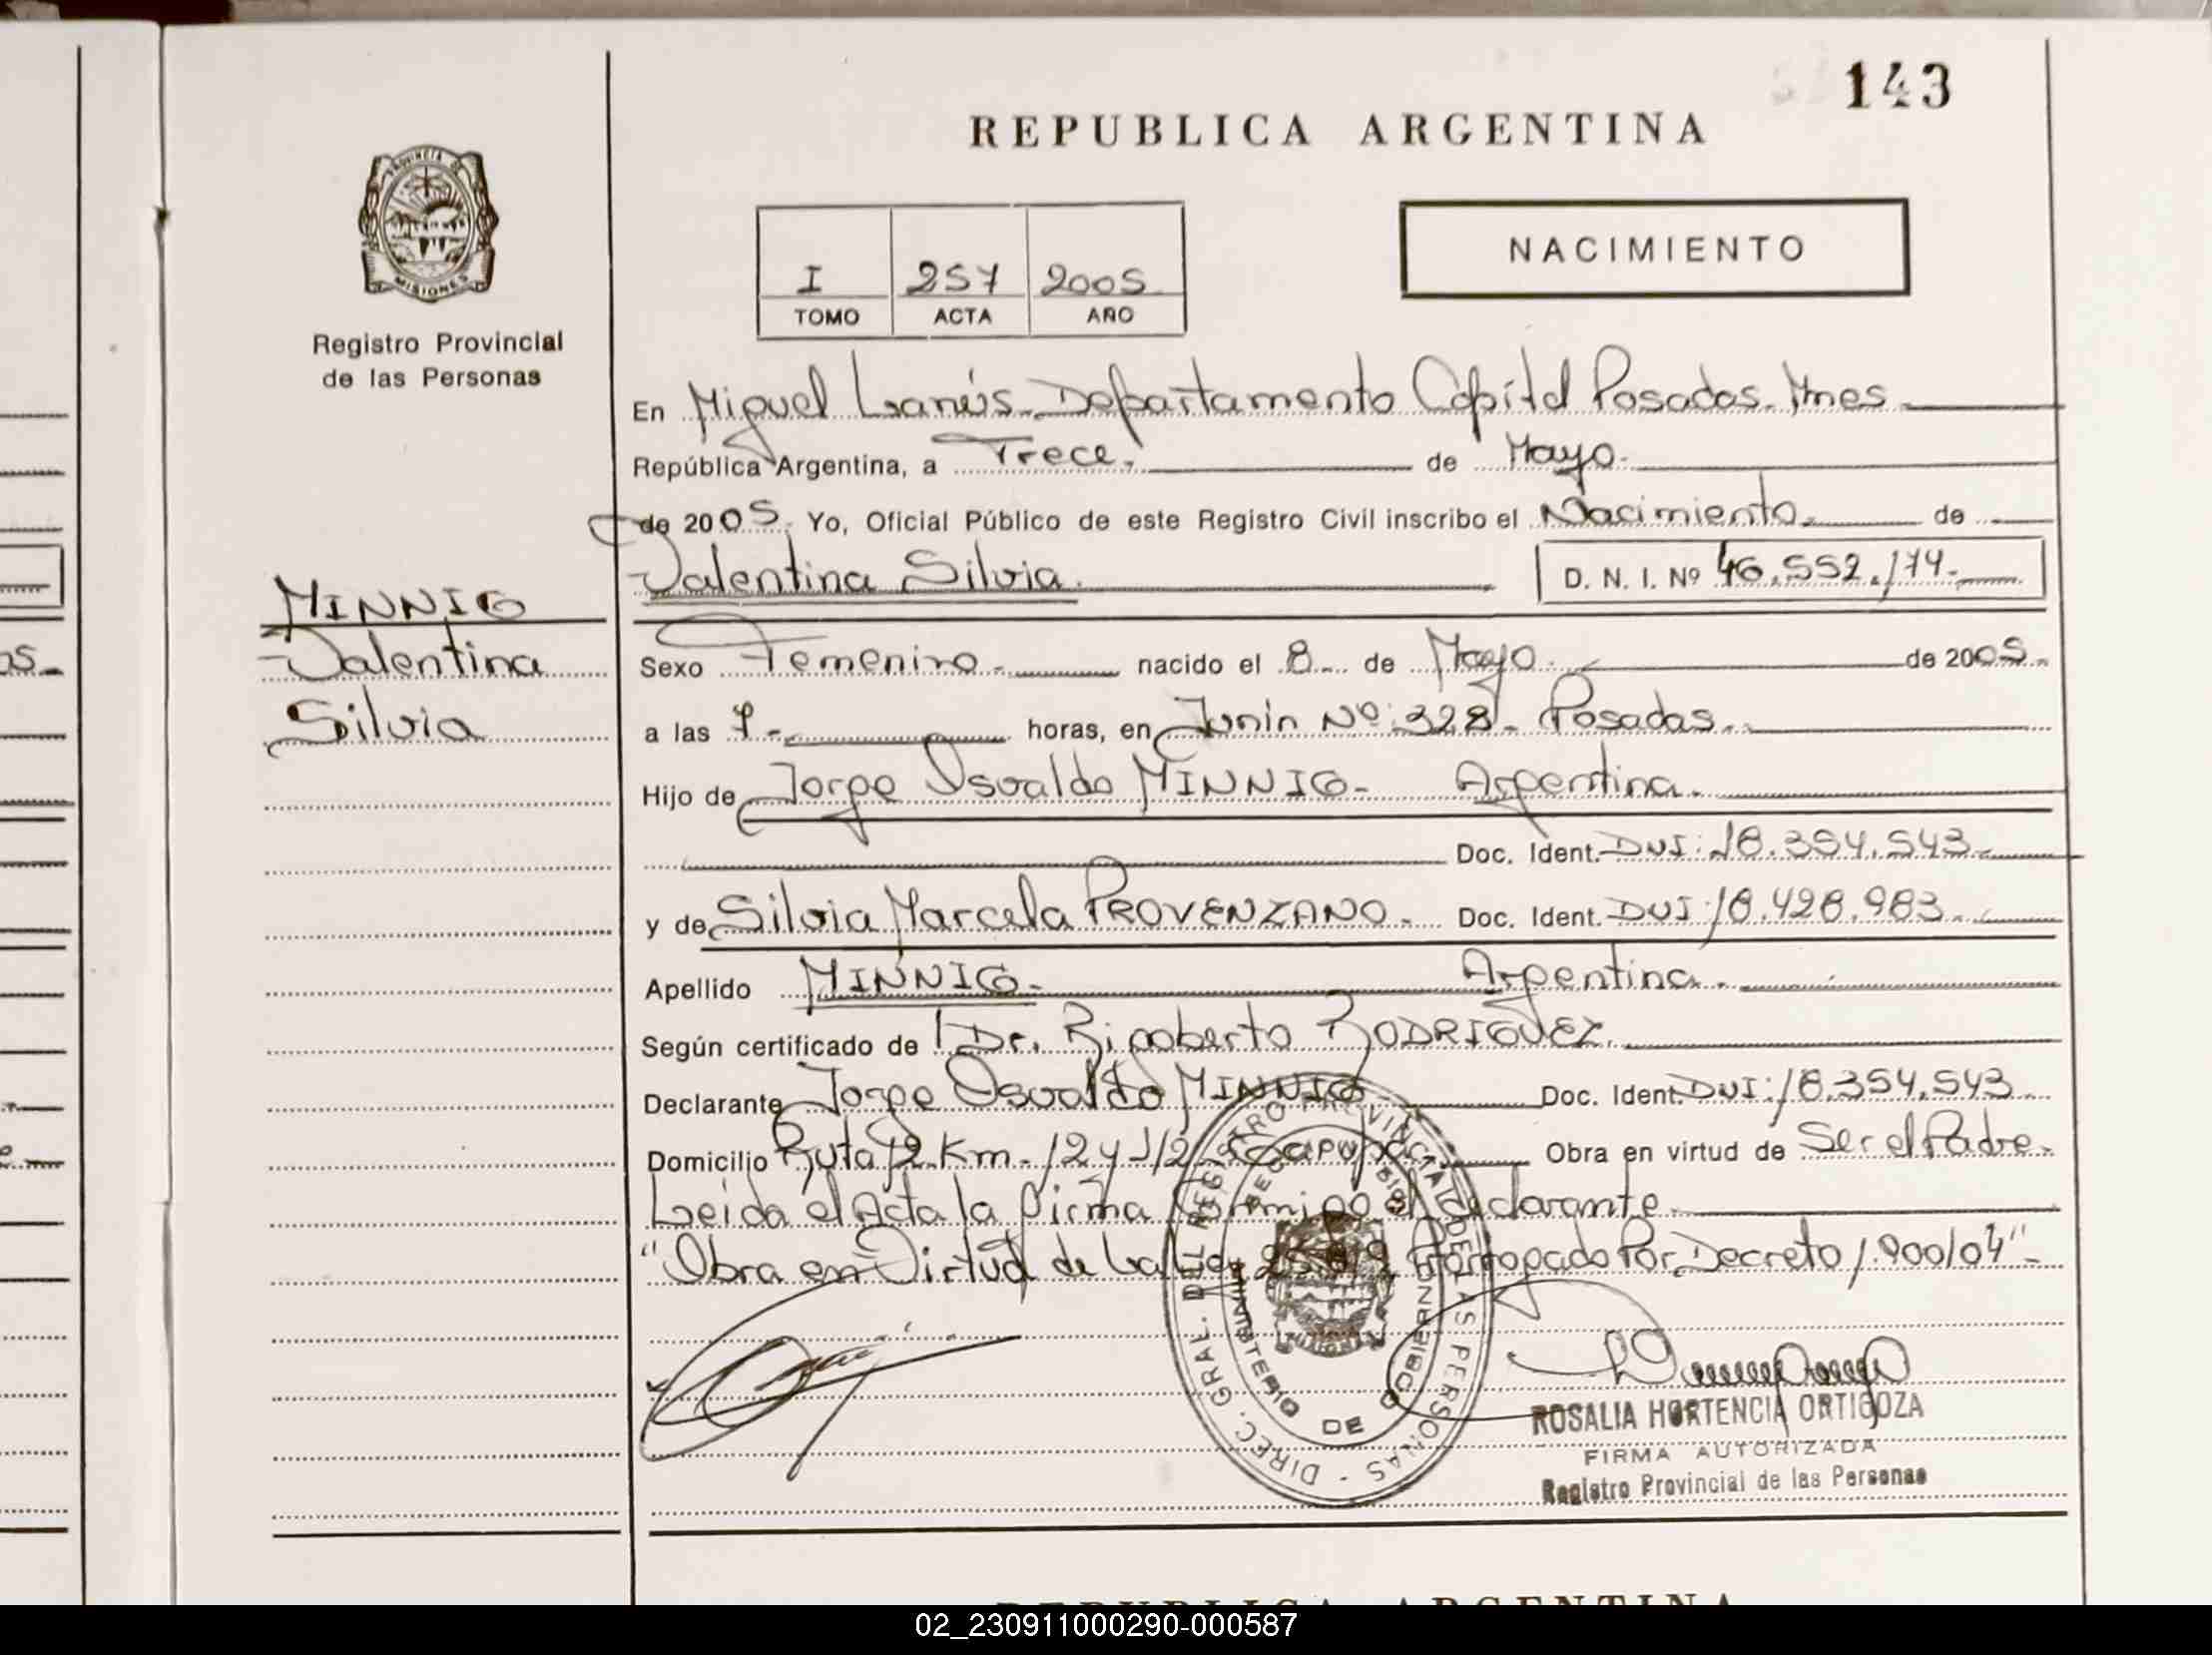 143
REPUBLICA ARGENTINA
PROVINCIA DE
MISIONES
Registro Provincial
de las Personas
NACIMIENTO
I 257 2005
TOMO ACTA AÑO
En Miguel Lanús - Departamento Capital Posadas - Mnes
República Argentina, a Trece. de Mayo.
de 2005. Yo, Oficial Público de este Registro Civil inscribo el Nacimiento. de
Valentina Silvia. D. N. I. Nº 46.552.174.
MINNIG
Valentina
Silvia
Sexo Femenino. nacido el 8 de Mayo. de 2005.
a las 7 - horas, en Junín Nº: 328 - Posadas.
Hijo de Jorge Osvaldo MINNIG - Argentina.
Doc. Ident. DNI: 18.354.543
y de Silvia Marcela PROVENZANO. Doc. Ident. DNI: 18.428.983.
Apellido MINNIG. Argentina.
Según certificado de Dr. Rigoberto RODRIGUEZ.
Declarante Jorge Osvaldo MINNIG Doc. Ident. DNI: 18.354.543.
Domicilio Ruta 12 Km. 12 y 1/2 Obra en virtud de Ser el Padre.
Leida el Acta la firma Conmigo el declarante
"Obra en Virtud de la Ley Prorrogado Por Decreto 1.900/04"
DIREC. GRAL. DEL REGISTRO PROVINCIAL DE LAS PERSONAS
MINISTERIO DE GOBIERNO
ROSALIA HORTENCIA ORTIGOZA
FIRMA AUTORIZADA
Registro Provincial de las Personas
REPUBLICA ARGENTINA
02_230911000290-000587